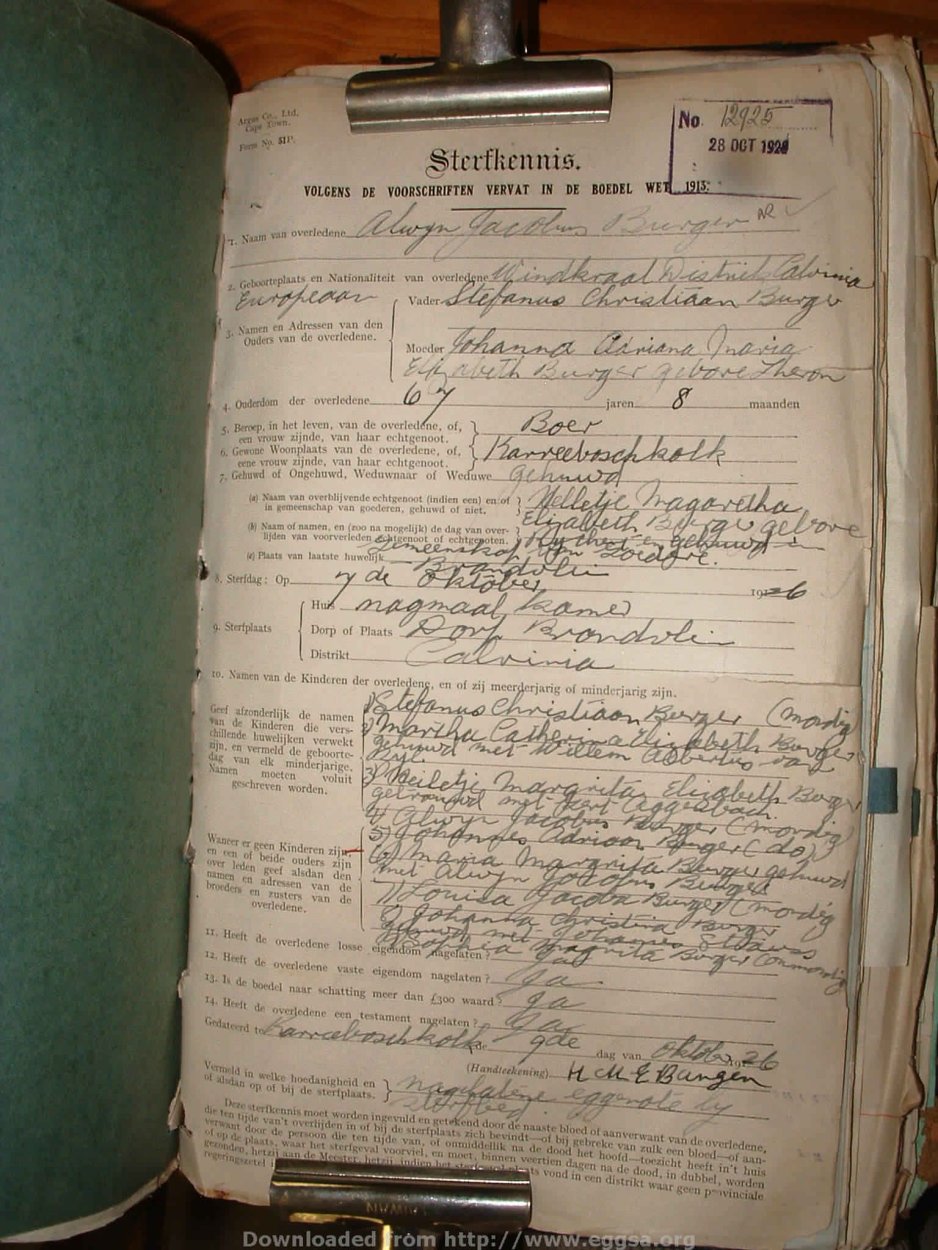 Argus Co., Ltd.
Cape Town.
Form No. 51P.
No. 12925
28 OCT 1926
Sterfkennis.
VOLGENS DE VOORSCHRIFTEN VERVAT IN DE BOEDEL WET 1913.
1. Naam van overledene Alwyn Jacobus Burger
2. Geboorteplaats en Nationaliteit van overledene Windkraal Distrikt Calvinia
Europeaan
3. Namen en Adressen van den Ouders van de overledene.
Vader Stefanus Christiaan Burger
Moeder Johanna Adriana Maria
Elizabeth Burger gebore Theron
4. Ouderdom der overledene 67 jaren 8 maanden
5. Beroep, in het leven, van de overledene, of, een vrouw zijnde, van haar echtgenoot. Boer
6. Gewone Woonplaats van de overledene, of, eene vrouw zijnde, van haar echtgenoot. Karreeboschkolk
7. Gehuwd of Ongehuwd, Weduwnaar of Weduwe gehuwd
(a) Naam van overblijvende echtgenoot (indien een) en of in gemeenschap van goederen, gehuwd of niet. Nelletje Magaretha
Elizabeth Burger gebore
(b) Naam of namen, en (zoo na mogelijk) de dag van overlijden van voorverleden echtgenoot of echtgenoten. en gehuwd in
gemeenskap van
(c) Plaats van laatste huwelijk Brandvlei
8. Sterfdag: Op 7 de Oktober 1926
9. Sterfplaats
Huis nagmaal kamer
Dorp of Plaats Dorp Brandvlei
Distrikt Calvinia
10. Namen van de Kinderen der overledene, en of zij meerderjarig of minderjarig zijn.
Geef afzonderlijk de namen
van de Kinderen die vers-
chillende huwelijken verwekt
zijn, en vermeld de geboorte-
dag van elk minderjarige.
Namen moeten voluit
geschreven worden.
1) Stefanus Christiaan Burger (mondig)
2) Martha Catherina Elizabeth Burger
gehuwd met Willem Albertus van
3) Neiletje Margrita Elizabeth Burger
getrouwd met
4) Alwyn Jacobus Burger (mondig)
5) Johannes Adriaan Burger (do)
Waneer er geen Kinderen zijn,
en een of beide ouders zijn
over leden geef alsdan den
namen en adressen van de
broeders en zusters van de
overledene.
6) Maria Margrita Burger gehuwd
met Alwyn Jacobus Burger
7) Louisa Jacoba Burger (mondig
8) Johanna Christina Burger
gehuwd met Johannes
9) Sophia Magrita Burger (onmondig
11. Heeft de overledene losse eigendom nagelaten? Ja
12. Heeft de overledene vaste eigendom nagelaten? Ja
13. Is de boedel naar schatting meer dan £300 waard? Ja
14. Heeft de overledene een testament nagelaten? Ja
Gedateerd te Karreeboschkolk de 9de dag van Oktober 1926
(Handteekening)
Vermeld in welke hoedanigheid en of alsdan op of bij de sterfplaats. nagelatene eggenote by
sterfbed.
Deze sterfkennis moet worden ingevuld en getekend door de naaste bloed of aanverwant van de overledene,
die ten tijde van't overlijden in of bij de sterfplaats zich bevindt—of bij gebreke van zulk een bloed—of aan-
verwant door de persoon die ten tijde van, of onmiddellik na de dood het hoofd—toezicht heeft in't huis
of op de plaats, waar het sterfgeval voorviel, en moet, binnen veertien dagen na de dood, in dubbel, worden
gezonden, hetzij aan de Meester, hetzij, indien het sterfgeval plaats vond in een distrikt waar geen provinciale
regeringszetel
Downloaded from http://www.eggsa.org